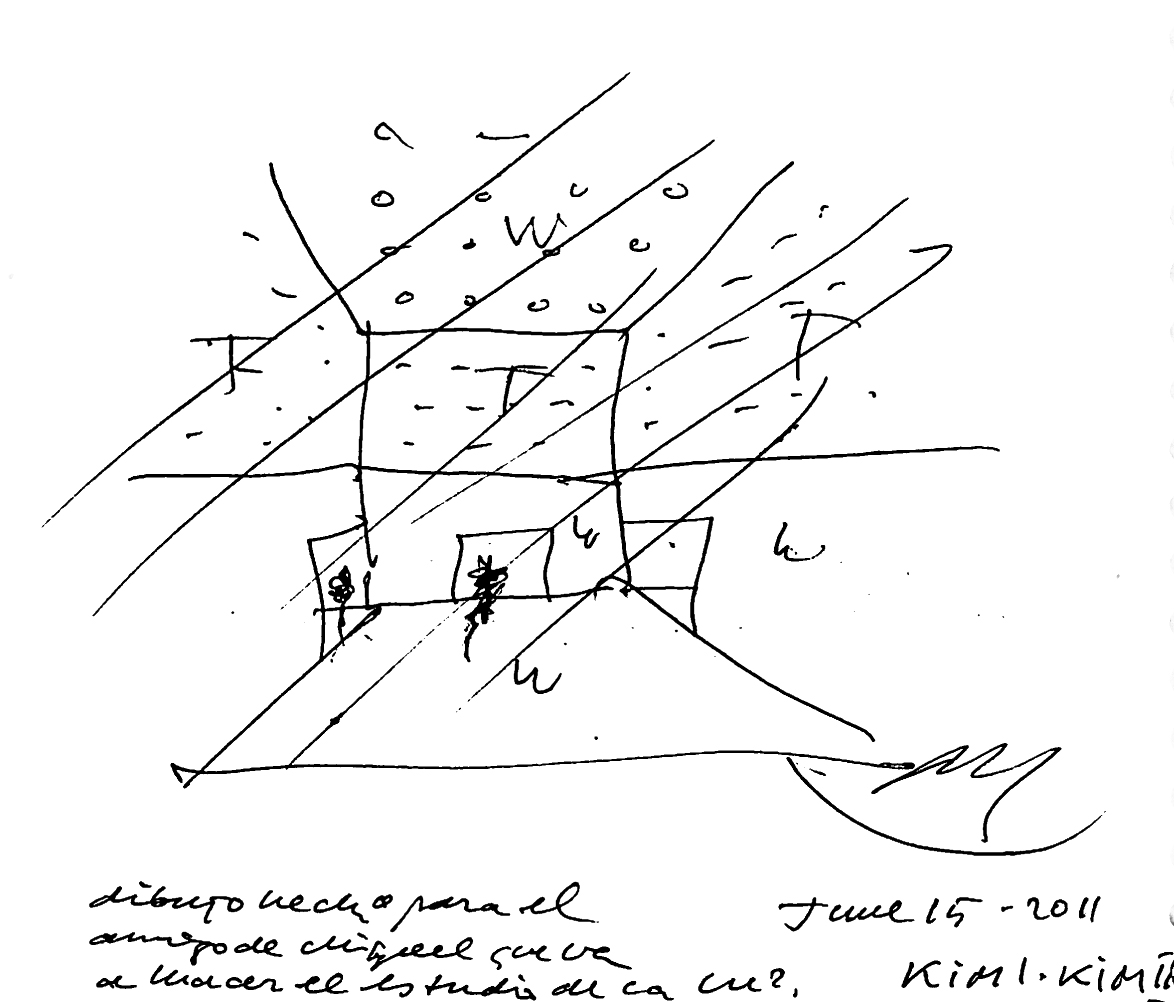 W
dibujo hecho para el
amigo de Miguel que va
a hacer el estudio de la luz.
June 15 - 2011